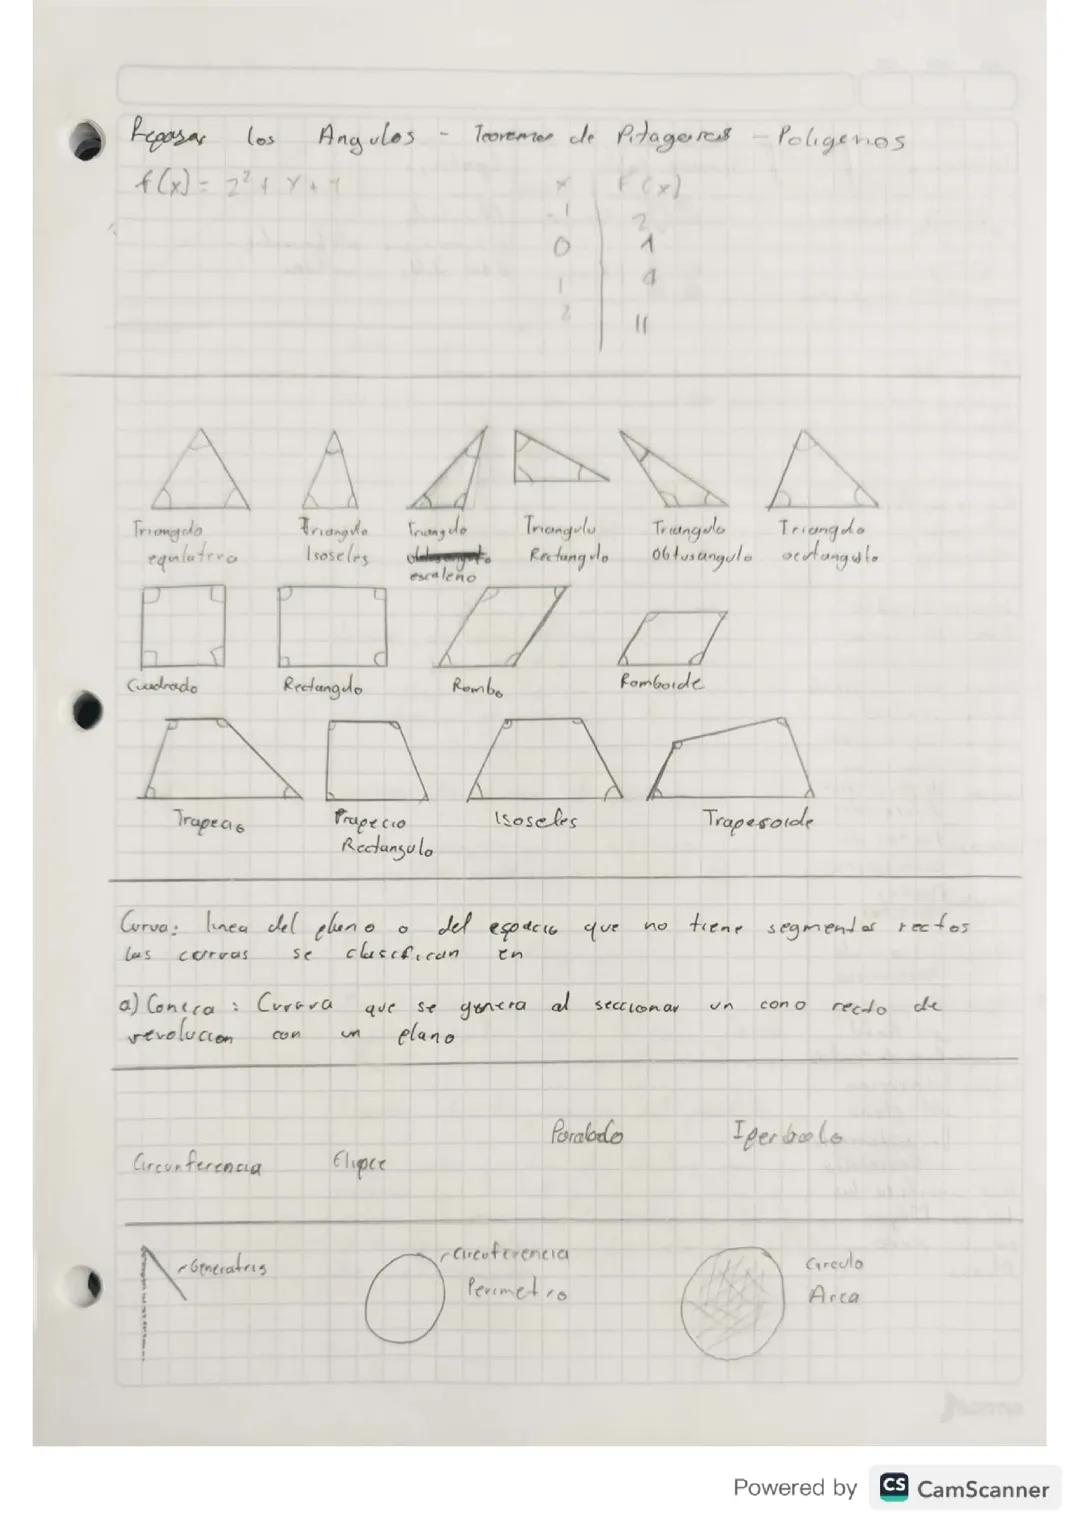 Repasar los Angulos - Teoremas de Pitagoras - Poligonos
f(x) = 2² + x + 1
x F(x)
-1 2
0 1
1 4
2 11
Triangulo Triangulo Triangulo Triangulo Triangulo Triangulo
equilatero Isoseles Rectangulo Obtusangulo acutangulo
escaleno
Cuadrado Rectangulo Rombo Romboide
Trapecio Trapecio Isoseles Trapesoide
Rectangulo
Curva: linea del plano o del espacio que no tiene segmentos rectos
las curvas se clasifican en
a) Conica: Curava que se genera al seccionar un cono recto de
revolucion con un plano
Parabola Iperbola
Circunferencia Elipce
Generatris
Circuferencia
Perimetro
Circulo
Area
norma
Powered by CS CamScanner